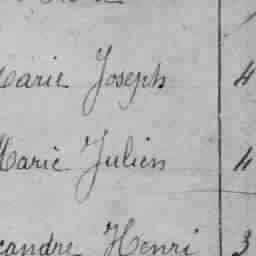 Marie Joseph 4
Marie Julien 4
Henri 3